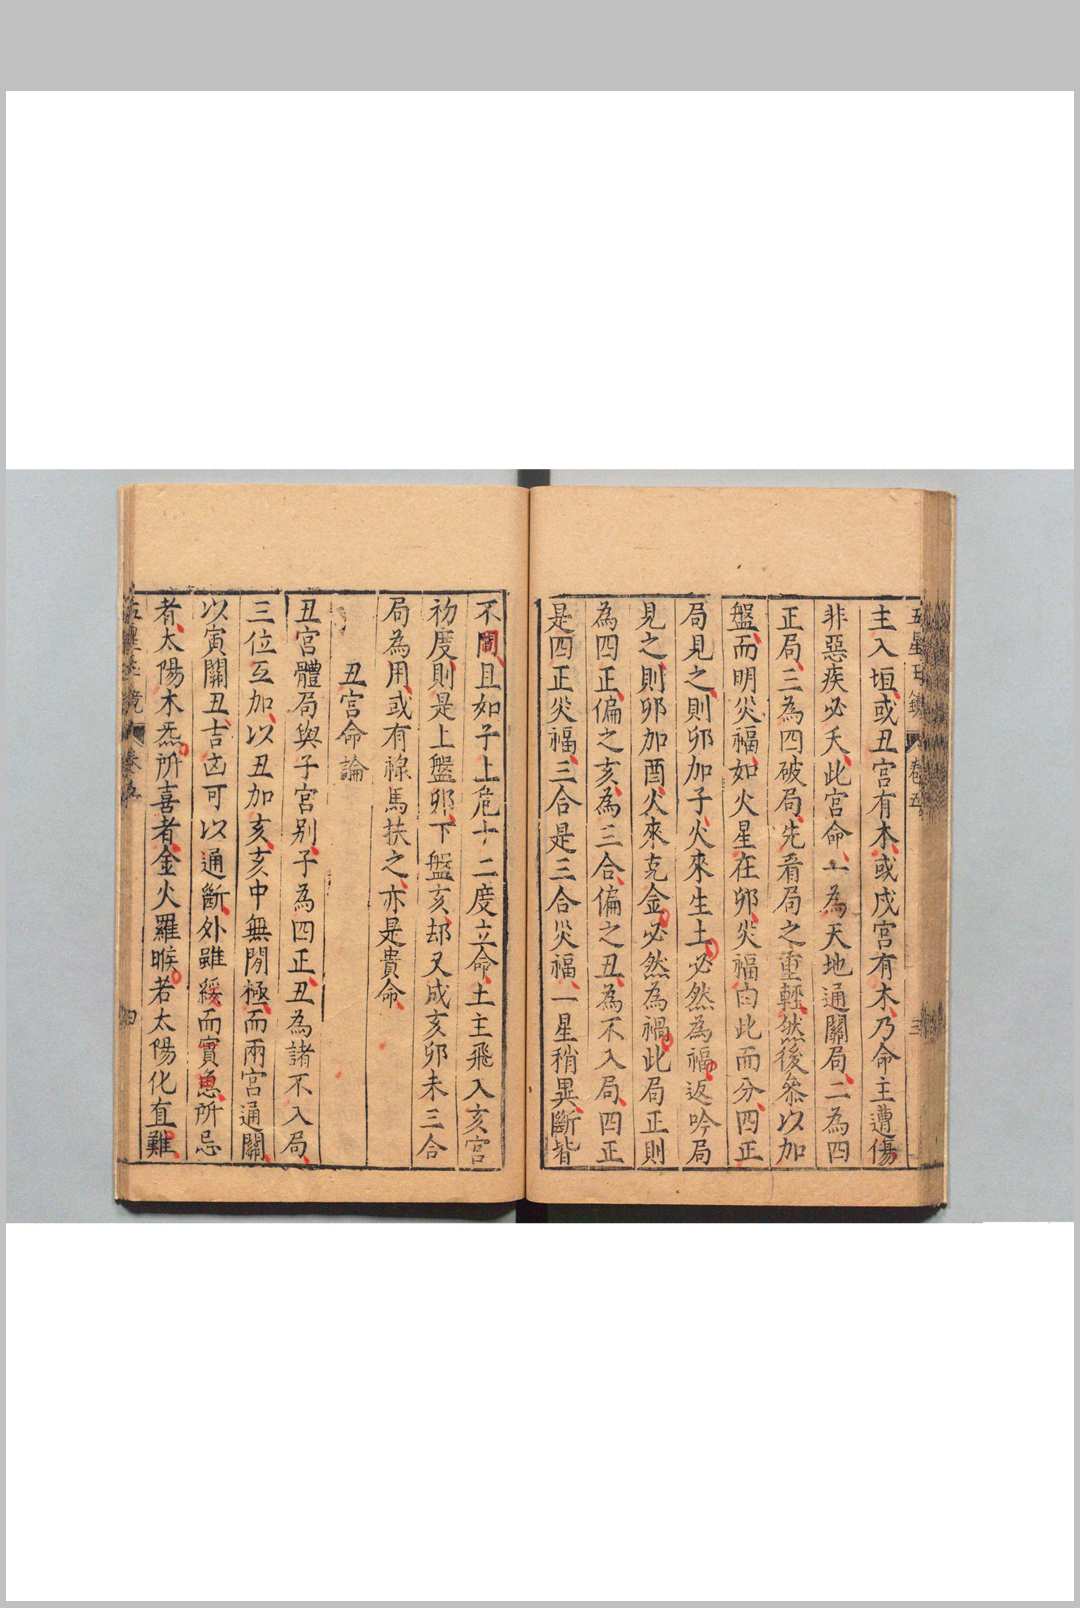 主入垣或丑宮有木或戌宮有木乃命主遭傷
非惡疾必夭此宮命一為天地通關局二為四
正局三為四破局先看局之重輕然後叅以加
盤而明災福如火星在卯災福自此而分四正
局見之則卯加子火來生土必然為福返吟局
見之則卯加酉火來克金必然為禍此局正則
為四正偏之亥為三合偏之丑為不入局四正
是四正災福三合是三合災福一星稍異斷皆
不同且如子上危十二度立命土主飛入亥宮
初度則是上盤卯下盤亥却又成亥卯未三合
局為用或有祿馬扶之亦是貴命
丑宮命論
丑宮體局與子宮別子為四正丑為諸不入局
三位互加以丑加亥亥中無閒極而兩宮通關
以寅關丑吉凶可以通斷外雖緩而實急所忌
者太陽木炁所喜者金火羅睺若太陽化直難
卷五
四
五星
卷五
三